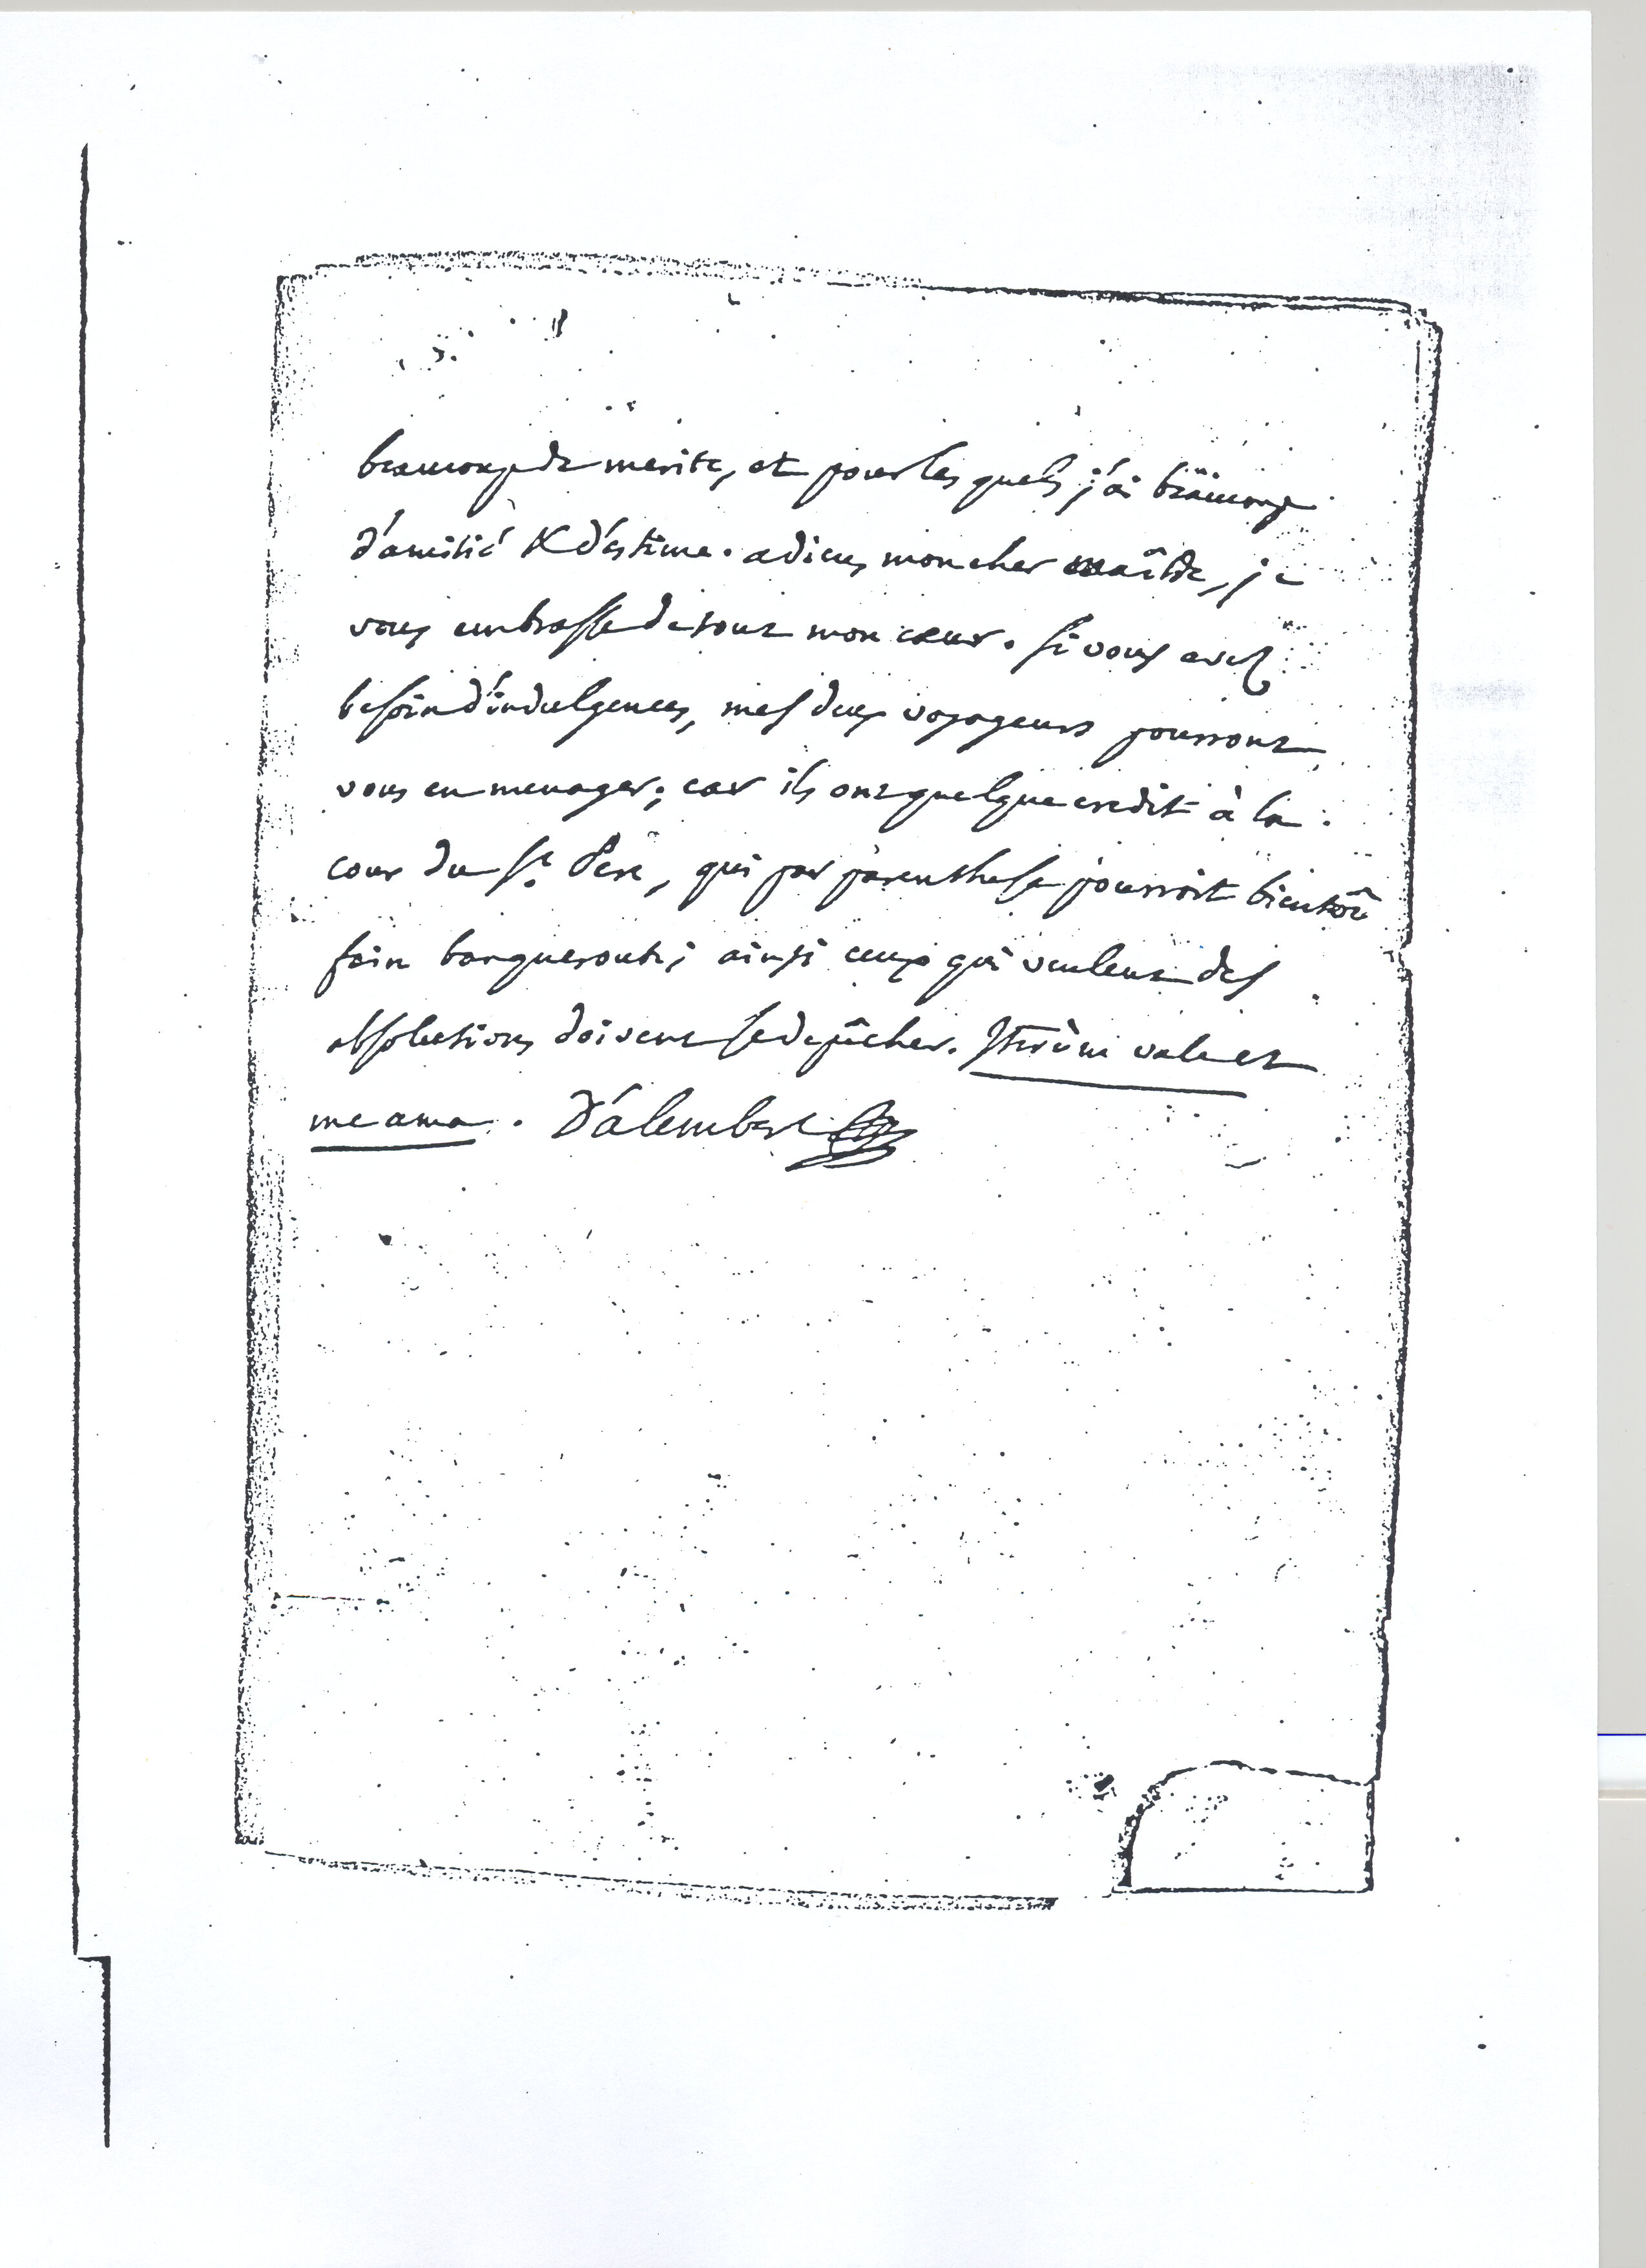 beaucoup de merite, et pour les quels j'ai beaucoup
d'amitié & d'estime. adieu, mon cher maître, je
vous embrasse de tout mon cœur. si vous avez
besoin d'indulgences, mes deux voyageurs pourront
vous en menager; car ils ont quelque credit à la
cour du St. Pere, qui par parenthese pourroit bientôt
faire banqueroute; ainsi ceux qui veulent des
absolutions doivent se depêcher. Iterùm vale et
me ama. D'alembert